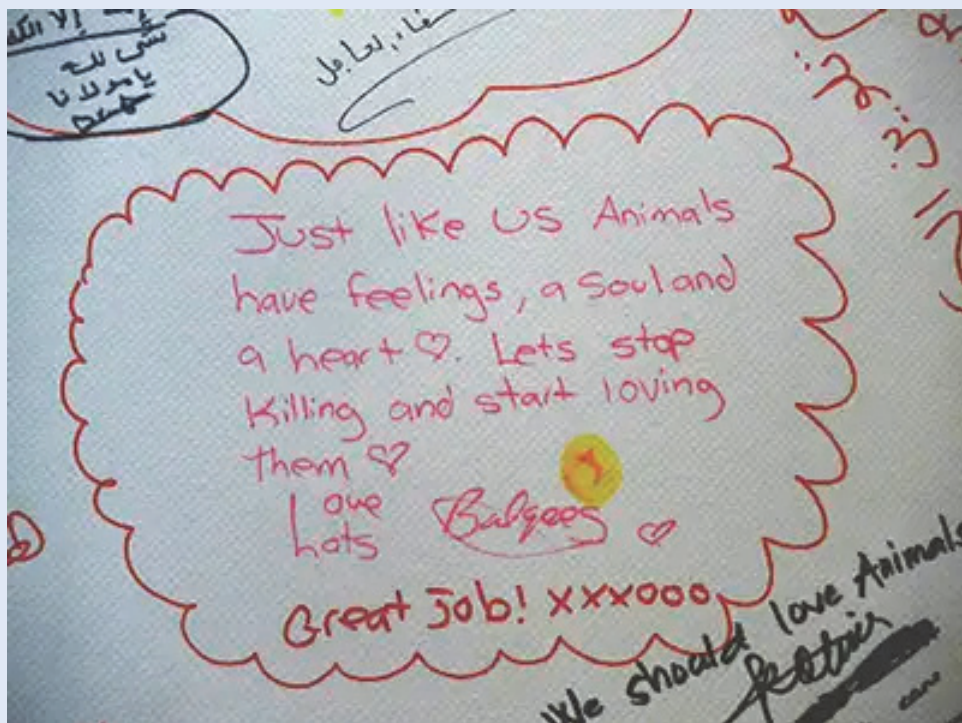 إلا
شي لله
يا مولانا
Just like US Animals
have feelings, a Soul and
a heart ♡. Lets stop
Killing and start loving
them ♡
Love
Lots
Balqees ♡
Great Job! xxxooo
We should love Animals